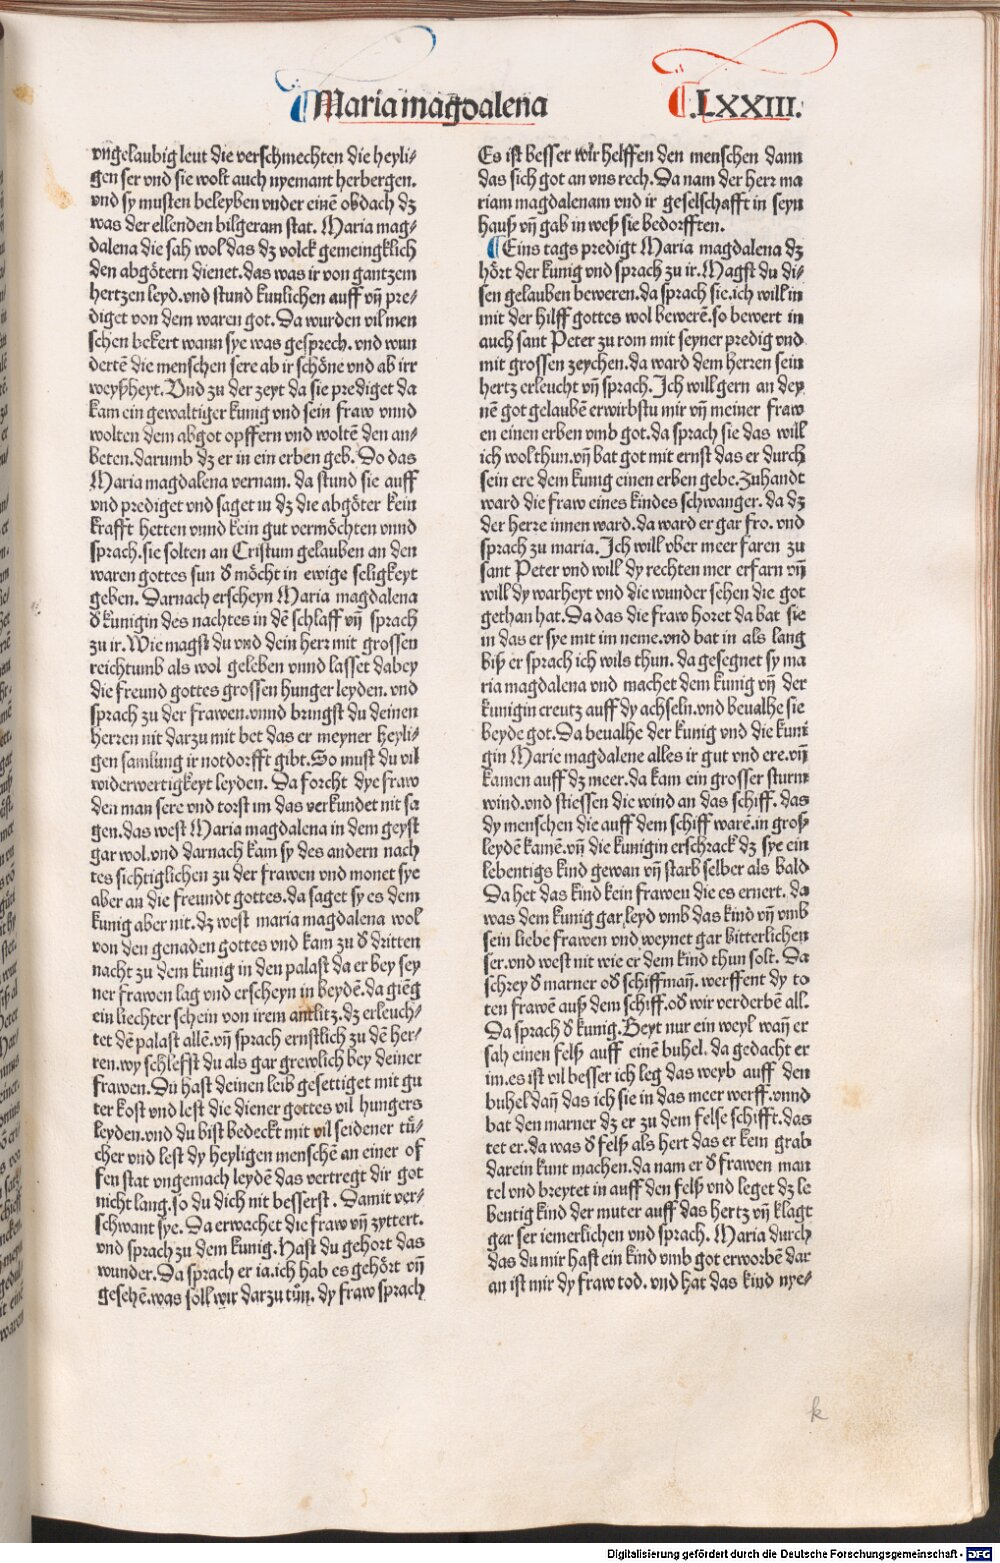 Maria magdalena
.LXXIII.
vngelaubig leut die verschmechten die heyli⸗
gen ser vnd sie wolt auch nyemant herbergen.
vnd sy musten beleyben vnder einē obdach dz
was der ellenden bilgeram stat. Maria mag⸗
dalena die sah wol das dz volck gemeingklich
den abgöttern dienet.das was ir von gantzem
hertzen leyd.vnd stund kunlichen auff vn̄ pre⸗
diget von dem waren got. Da wurden vil men
schen bekert wann sye was gesprech. vnd wun
dertē die menschen sere ab ir schöne vnd ab irr
weyßheyt. Vnd zu der zeyt da sie prediget da
kam ein gewaltiger kunig vnd sein fraw vnnd
wolten dem abgot opffern vnd woltē den an⸗
beten.darumb dz er in ein erben geb. Do das
Maria magdalena vernam. da stund sie auff
vnd prediget vnd saget in dz die abgöter kein
krafft hetten vnnd kein gut vermöchten vnnd
sprach.sie solten an Cristum gelauben an den
waren gottes sun d̕ möcht in ewige seligkeyt
geben. Darnach erscheyn Maria magdalena
d̕ kunigin des nachtes in dē schlaff vn̄ sprach
zu ir.Wie magst du vnd dein herr mit grossen
reichtumb als wol geleben vnnd lasset dabey
die freund gottes grossen hunger leyden. vnd
sprach zu der frawen.vnnd bringst du deinen
herren nit darzu mit bet das er meyner heyli⸗
gen samlung ir notdorfft gibt.So must du vil
widerwertigkeyt leyden. Da forcht dye fraw
den man sere vnd torst im das verkundet nit sa
gen.das west Maria magdalena in dem geyst
gar wol.vnd darnach kam sy des andern nach
tes sichtiglichen zu der frawen vnd monet sye
aber an die freundt gottes.da saget sy es dem
kunig aber nit.dz west maria magdalena wol
von den genaden gottes vnd kam zu d̕ dritten
nacht zu dem kunig in den palast da er bey sey
ner frawen lag vnd erscheyn in beydē.da giēg
ein liechter schein von irem antlitz.dz erleuch⸗
tet dē palast allē.vn̄ sprach ernstlich zu dē her⸗
ren.wy schlefst du als gar grewlich bey deiner
frawen.Du hast deinen leib gesettiget mit gu
ter kost vnd lest die diener gottes vil hungers
leyden.vnd du bist bedeckt mit vil seidener tü⸗
cher vnd lest dy heyligen menschē an einer of
fen stat vngemach leydē das vertregt dir got
nicht lang.so du dich nit besserst. Damit ver⸗
schwant sye. Da erwachet die fraw vn̄ zyttert.
vnd sprach zu dem kunig.Hast du gehort das
wunder.Da sprach er ia.ich hab es gehört vn̄
gesehē.was soll wir darzu tůn. dy fraw sprach
Es ist besser wir helffen den menschen dann
das sich got an vns rech. Da nam der herr ma
riam magdalenam vnd ir geselschafft in seyn
hauß vn̄ gab in weß sie bedorfften.
Eins tags predigt Maria magdalena dz
hört der kunig vnd sprach zu ir.Magst du di⸗
sen gelauben beweren.da sprach sie.ich will in
mit der hilff gottes wol bewerē.so bewert in
auch sant Peter zu rom mit seyner predig vnd
mit grossen zeychen.da ward dem herren sein
hertz erleucht vn̄ sprach.Ich will gern an dey
nē got gelaubē erwirbstu mir vn̄ meiner fraw
en einen erben vmb got.da sprach sie das will
ich wol thun.vn̄ bat got mit ernst das er durch
sein ere dem kunig einen erben gebe.Zuhandt
ward die fraw eines kindes schwanger. da dz
der herre innen ward.da ward er gar fro. vnd
sprach zu maria.Ich will vber meer faren zu
sant Peter vnd will dy rechten mer erfarn vn̄
will dy warheyt vnd die wunder sehen die got
gethan hat.Da das die fraw horet da bat sie
in das er sye mit im neme.vnd bat in als lang
biß er sprach ich wils thun. da gesegnet sy ma
ria magdalena vnd machet dem kunig vn̄ der
kunigin creutz auff dy achseln.vnd beualhe sie
beyde got.Da beualhe der kunig vnd die kuni
gin Marie magdalene alles ir gut vnd ere.vn̄
kamen auff dz meer.da kam ein grosser sturm
wind.vnd stiessen die wind an das schiff. das
dy menschen die auff dem schiff warē.in groß
leydē kamē.vn̄ die kunigin erschrack dz sye ein
lebentigs kind gewan vn̄ starb selber als bald
Da het das kind kein frawen die es ernert. da
was dem kunig gar leyd vmb das kind vn̄ vmb
sein liebe frawen vnd weynet gar bitterlichen
ser.vnd west nit wie er dem kind thun solt. Da
schrey d̕ marner od̕ schiffman̄. werffent dy to
ten frawē auß dem schiff.od̕ wir verderbē all.
Da sprach d̕ kunig.Beyt nur ein weyl wan̄ er
sah einen felß auff einē buhel. da gedacht er
im.es ist vil besser ich leg das weyb auff den
buhel dan̄ das ich sie in das meer werff.vnnd
bat den marner dz er zu dem felse schifft.das
tet er.da was d̕ felß als hert das er kein grab
darein kunt machen.da nam er d̕ frawen man
tel vnd breytet in auff den felß vnd leget dz le
bentig kind der muter auff das hertz vn̄ klagt
gar ser iemerlichen vnd sprach. Maria durch
das du mir hast ein kind vmb got erworbē dar
an ist mir dy fraw tod. vnd hat das kind nye⸗
k
Digitalisierung gefördert durch die Deutsche Forschungsgemeinschaft - DFG